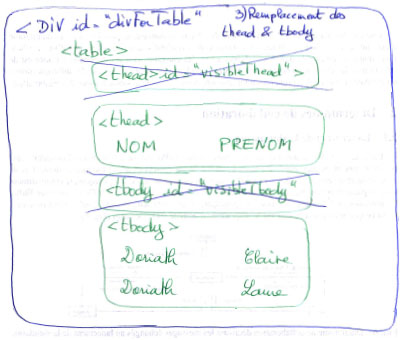 < DiV id = "divForTable"
3) Remplacement des
thead & tbody
<table>
<thead> id = "visibleThead">
<thead>
NOM PRENOM
<tbody id = "visibleTbody"
<tbody>
Doriath Elaire
Doriath Laure